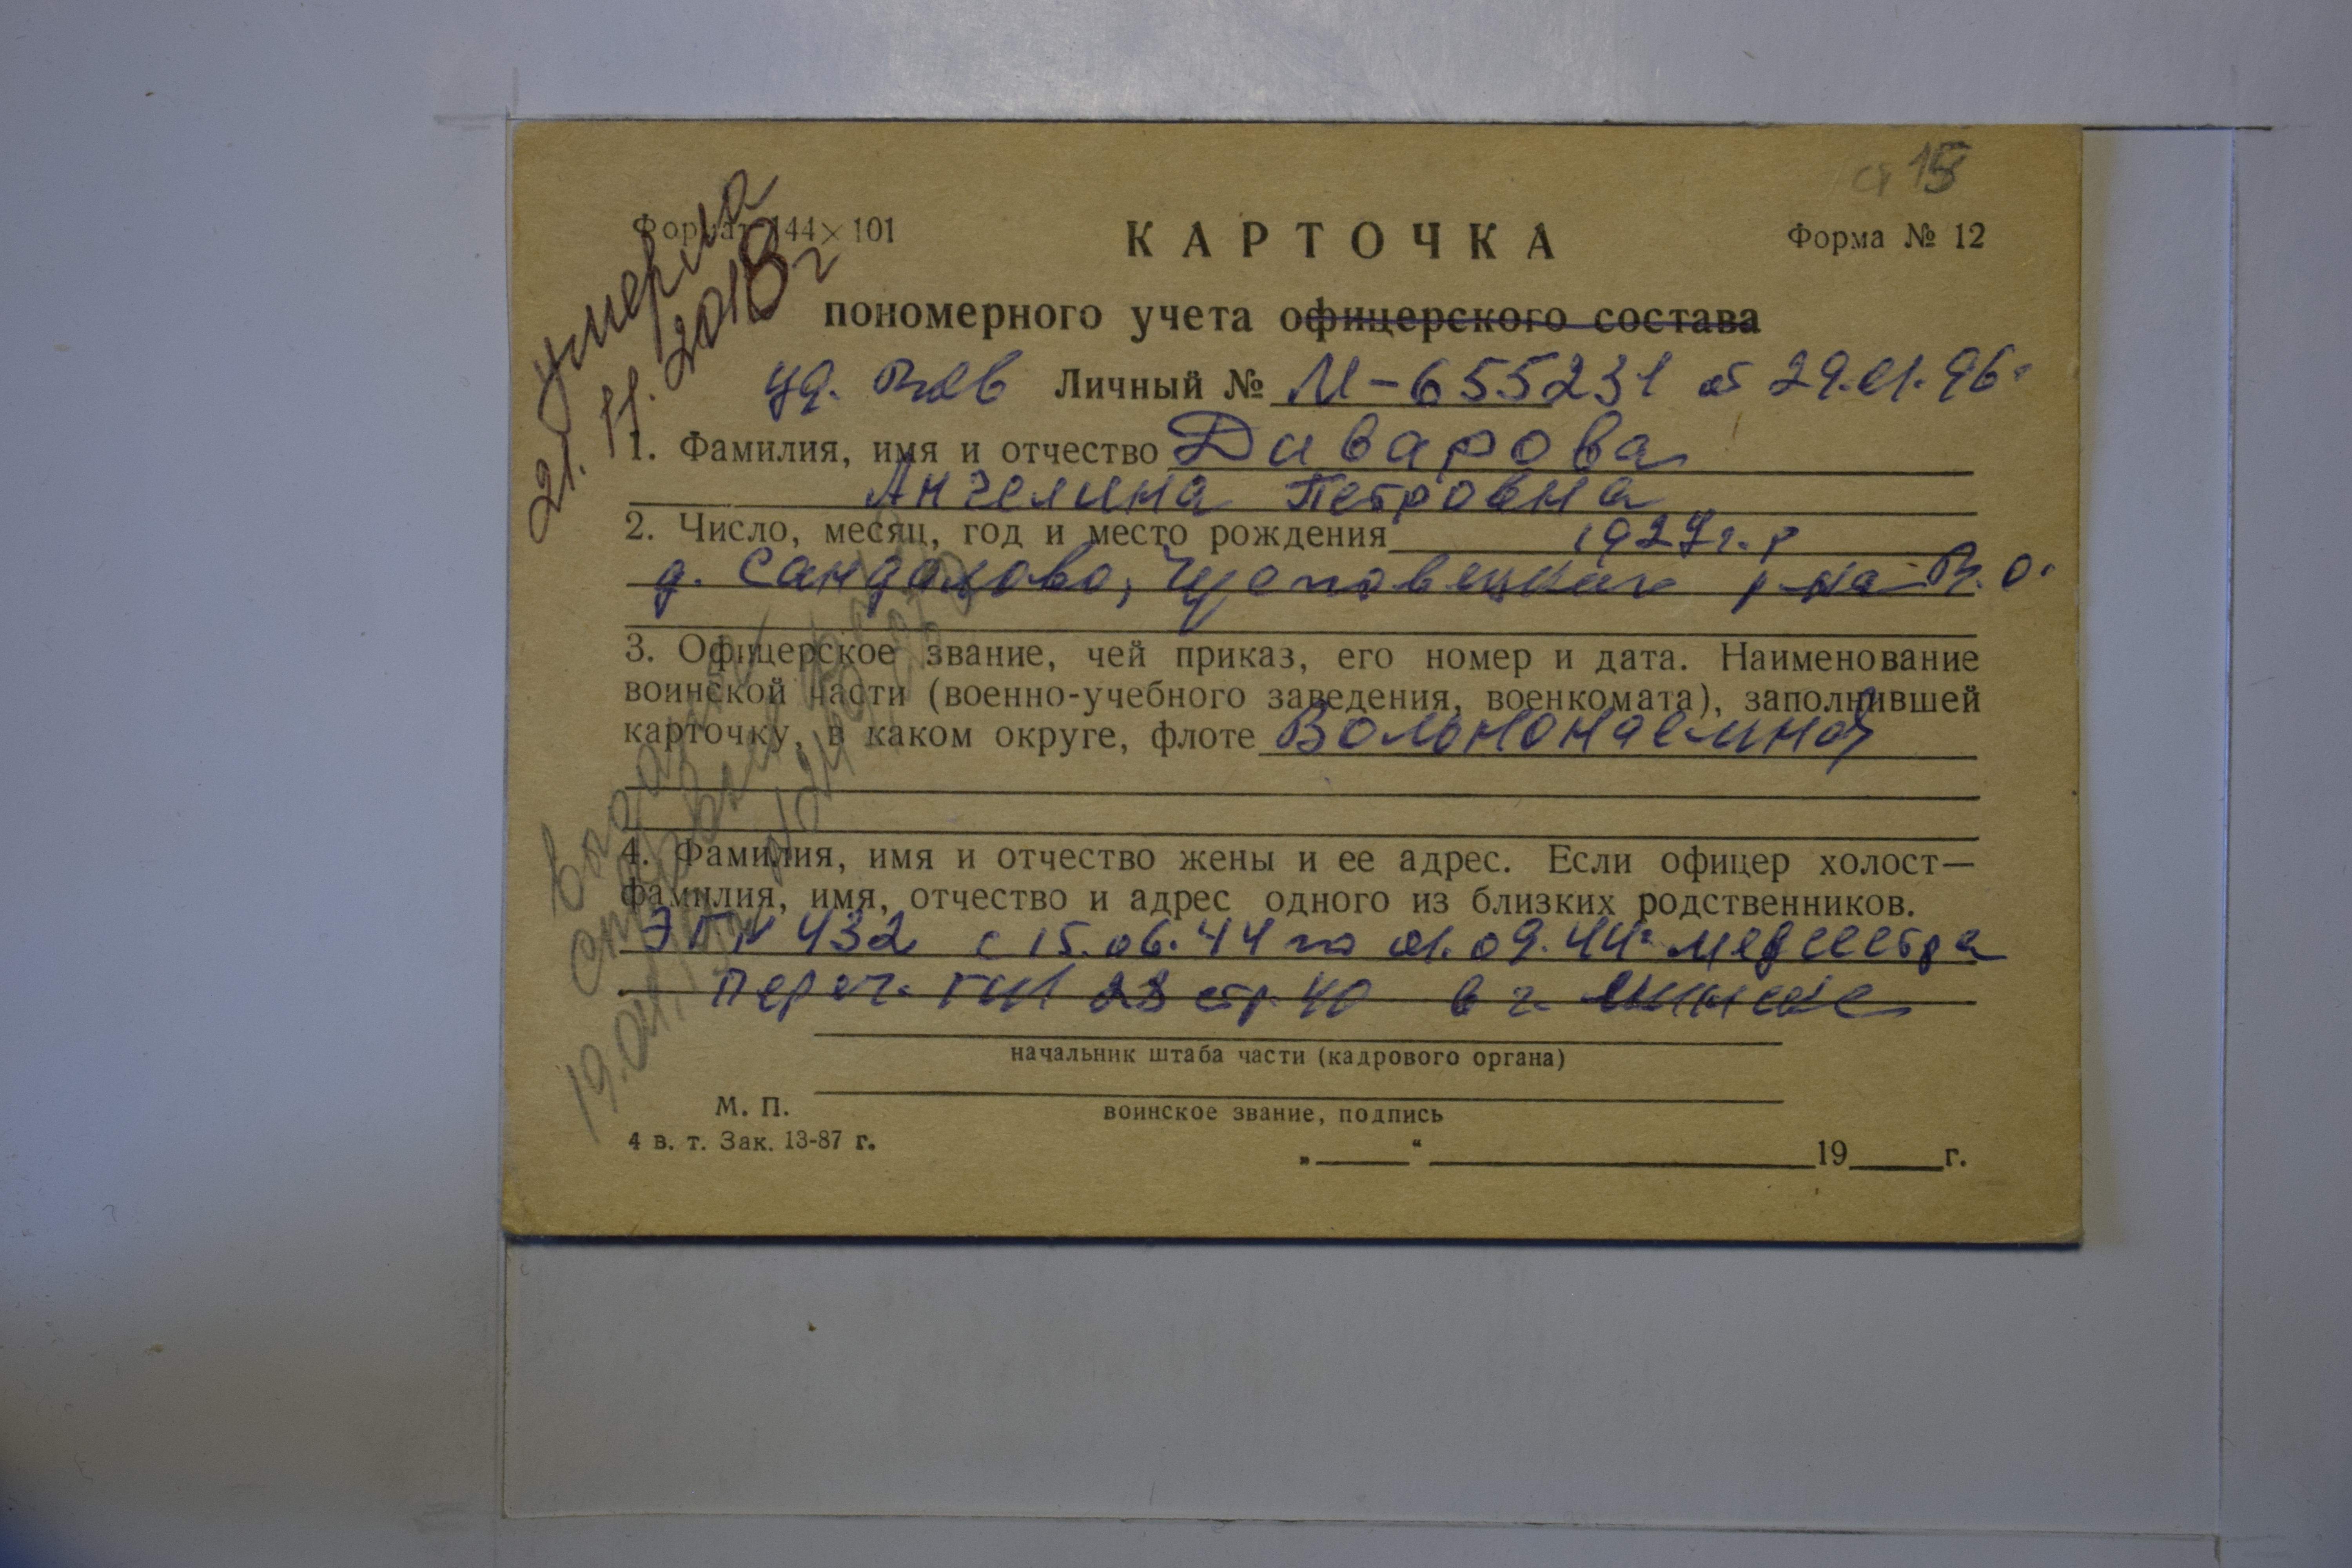 ст 15
Формат 144×101
КАРТОЧКА
Форма № 12
умерла
21.11.2018 г
пономерного учета офицерского состава
уд. ВОВ Личный № М-655231 от 29.01.96г
1. Фамилия, имя и отчество Диварова
Ангелина Петровна
2. Число, месяц, год и место рождения 1927 г.р
д. Сандалово, Череповецкого р-на В.О.
3. Офицерское звание, чей приказ, его номер и дата. Наименование
воинской части (военно-учебного заведения, военкомата), заполнившей
карточку, в каком округе, флоте Вольнонаемная
4. Фамилия, имя и отчество жены и ее адрес. Если офицер холост—
фамилия, имя, отчество и адрес одного из близких родственников.
ЭГ № 432 с 15.06.44 по 01.09.44г медсестра
переч. ГШ 28 стр. 40 в г. Минске
начальник штаба части (кадрового органа)
М. П.
воинское звание, подпись
4 в. т. Зак. 13-87 г.
„ “ 19 г.